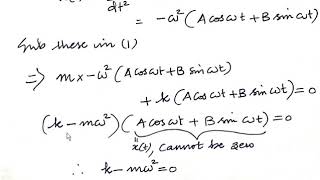 dt² = -ω² (A cos ωt + B sin ωt)
Sub these in (1)
⇒ m x -ω² (A cos ωt + B sin ωt)
+ k (A cos ωt + B sin ωt) = 0
(k - mω²) (A cos ωt + B sin ωt) = 0
x(t), cannot be zero
∴ k - mω² = 0